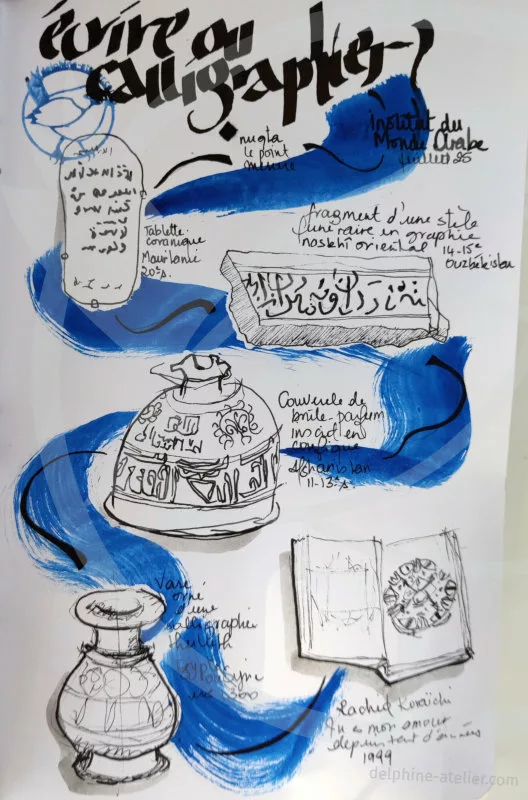 écrire ou
calligraphier?
nuqta
le point
mesure
Institut du
Monde Arabe
juillet 25
Tablette
coranique
Mauritanie
20e s.
fragment d'une stèle
funéraire en graphie
naskhi oriental
14-15e
Ouzbékistan
Couvercle de
brûle-parfum
inscrit en
coufique
Afghanistan
11-13e s.
Vase
orné
d'une
calligraphie
thuluth
Rachid Koraïchi
Tu es mon amour
depuis tant d'années
1999
delphine-atelier.com